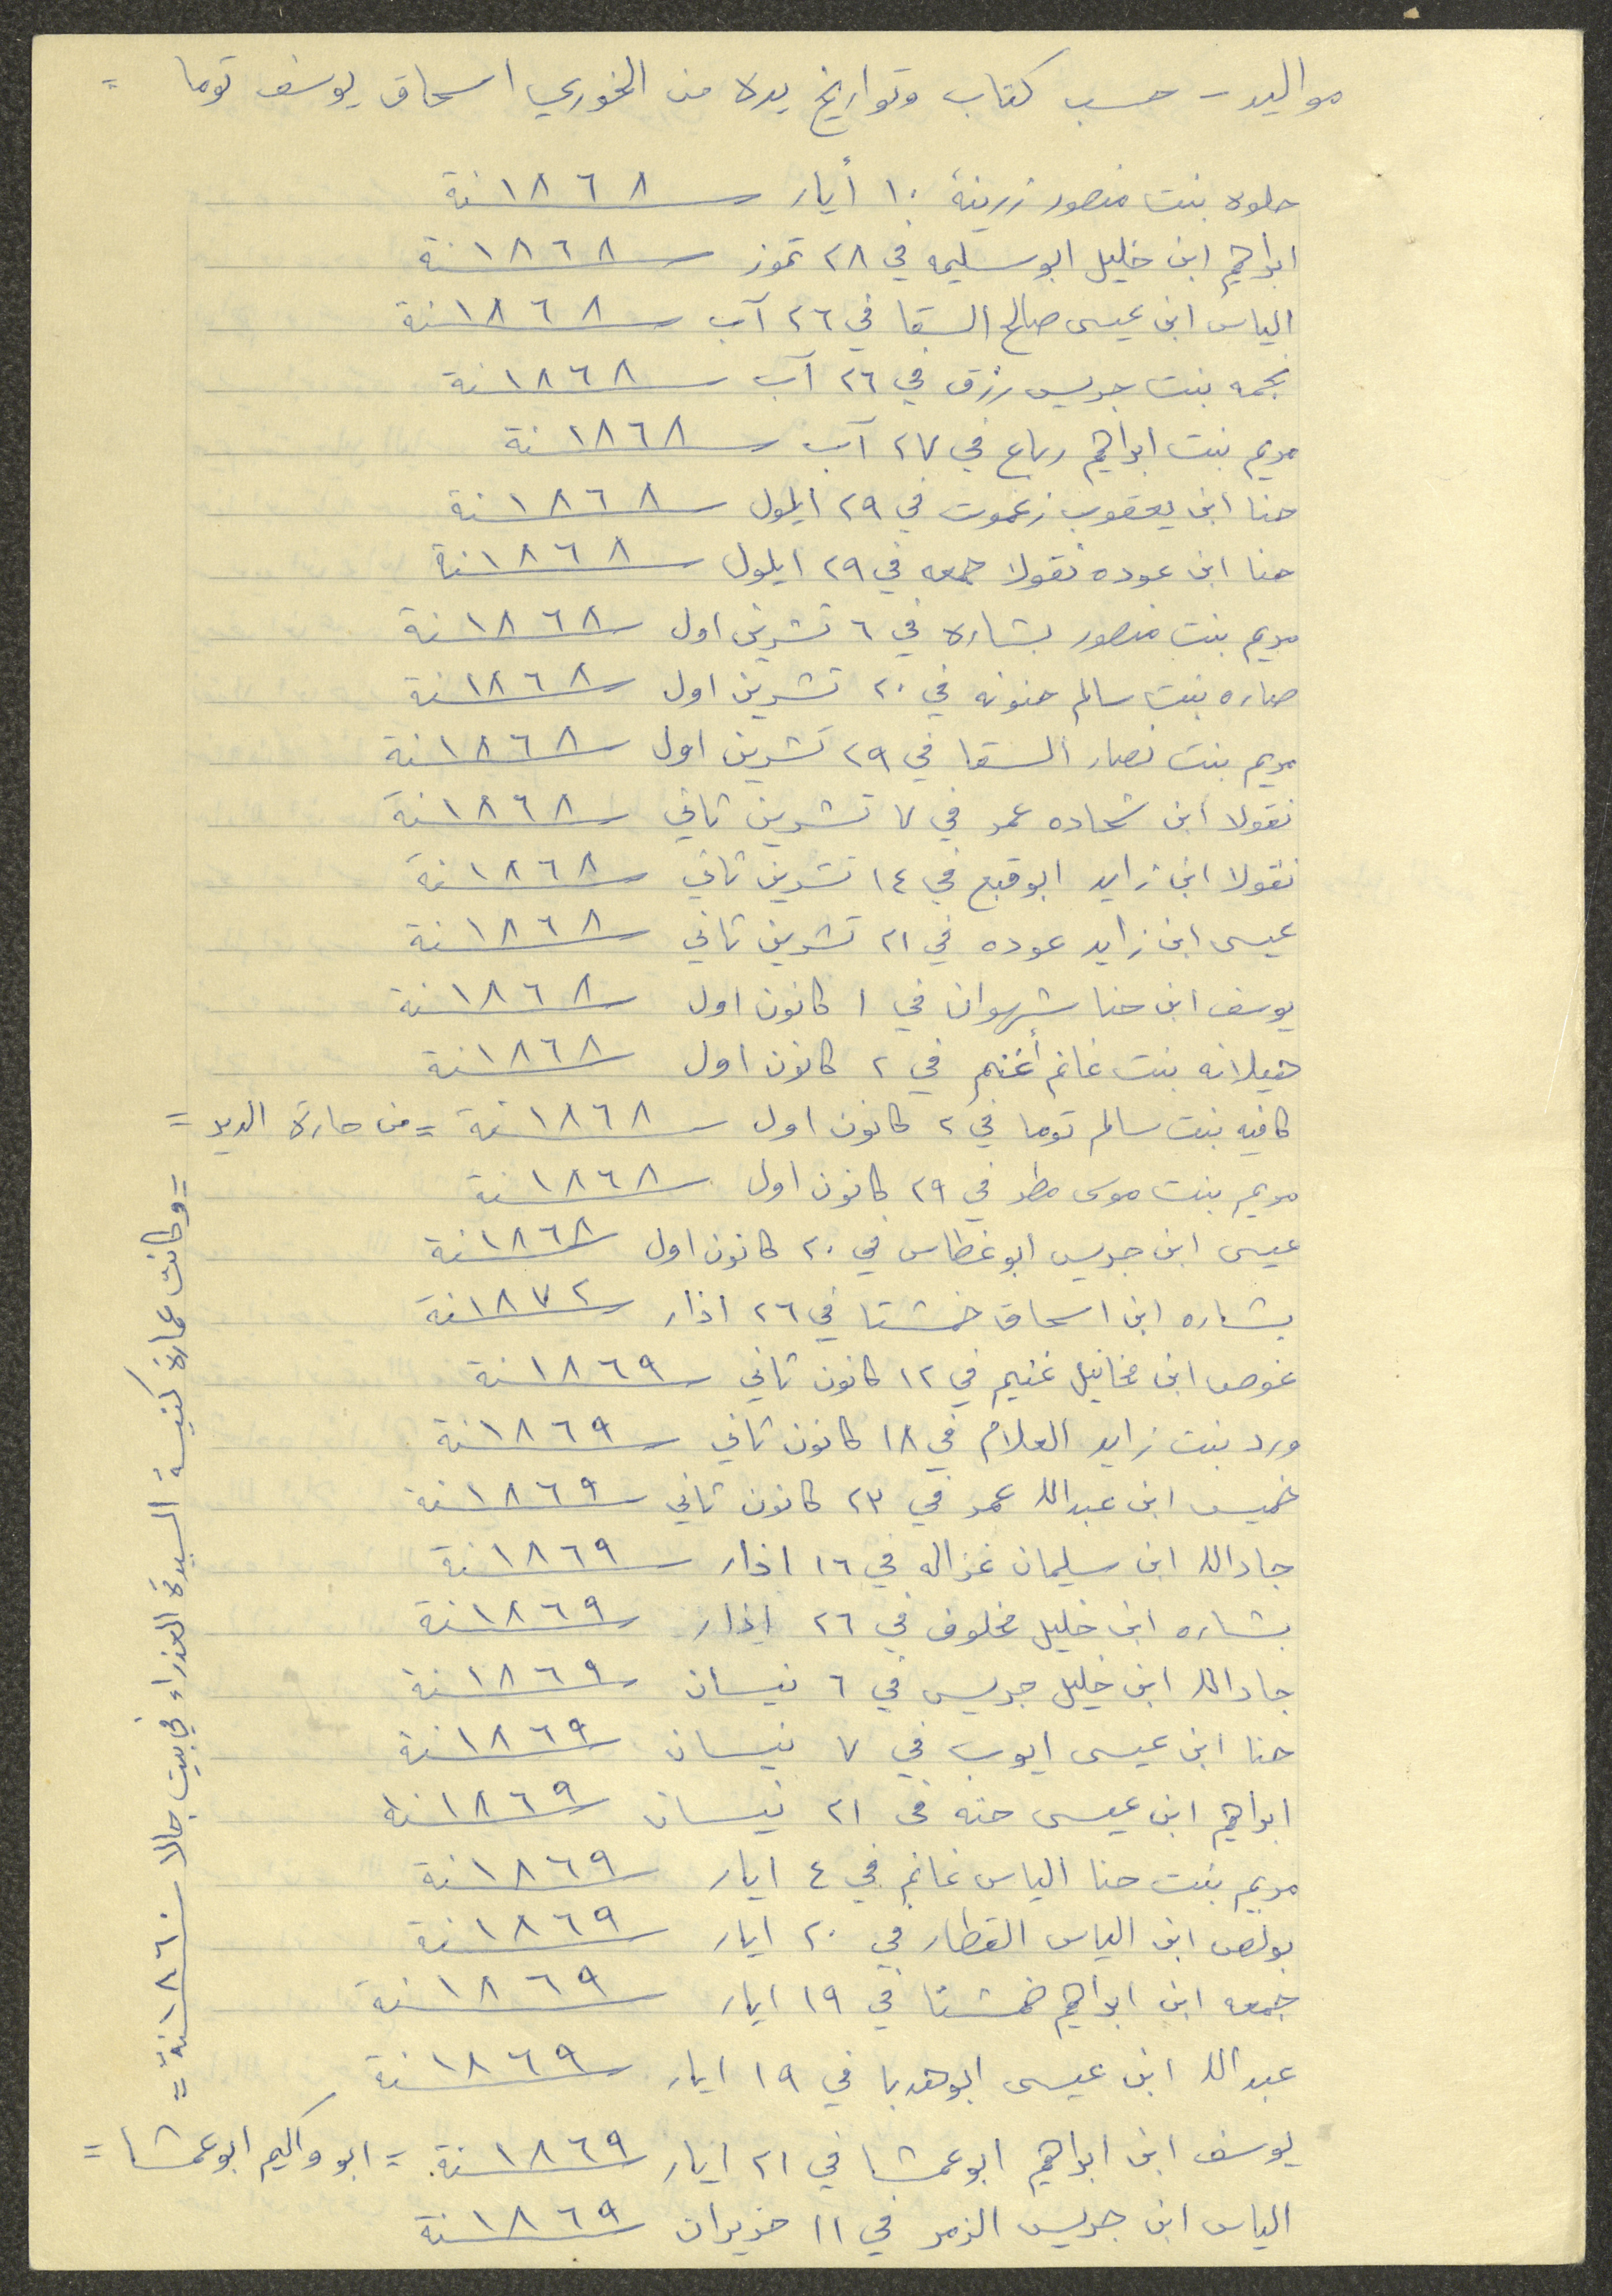 مواليد - حسب كتاب وتواريخ يده من الخوري اسحاق يوسف توما =
حلوه بنت منصور زرينة ١٠ أيار سنة ١٨٦٨
ابراهيم ابن خليل ابو سليمه في ٢٨ تموز سنة ١٨٦٨
الياس ابن عيسى صالح السقا في ٢٦ آب سنة ١٨٦٨
نجمه بنت جريس رزق في ٢٦ آب سنة ١٨٦٨
مريم بنت ابراهيم رباع في ٢٧ آب سنة ١٨٦٨
حنا ابن يعقوب زغموت في ٢٩ ايلول سنة ١٨٦٨
حنا ابن عوده نقولا جمعه في ٢٩ ايلول سنة ١٨٦٨
مريم بنت منصور بشاره في ٦ تشرين اول سنة ١٨٦٨
صاره بنت سالم حنونه في ٢٠ تشرين اول سنة ١٨٦٨
مريم بنت نصار السقا في ٢٩ تشرين اول سنة ١٨٦٨
نقولا ابن شحاده عمر في ٧ تشرين ثاني سنة ١٨٦٨
نقولا ابن زايد ابو قبع في ١٤ تشرين ثاني سنة ١٨٦٨
عيسى ابن زايد عوده في ٢١ تشرين ثاني سنة ١٨٦٨
يوسف ابن حنا شهوان في ١ كانون اول سنة ١٨٦٨
هيلانه بنت غانم اغنيم في ٢ كانون اول سنة ١٨٦٨
كافيه بنت سالم توما في ٢ كانون اول سنة ١٨٦٨ = من حارة الدير =
مريم بنت موسى مطر في ٢٩ كانون اول سنة ١٨٦٨
عيسى ابن جريس ابو غطاس في ٢٠ كانون اول سنة ١٨٦٨
بشاره ابن اسحاق خمشتا في ٢٦ اذار سنة ١٨٧٢
غوص ابن مخائيل غنيم في ١٢ كانون ثاني سنة ١٨٦٩
ورد بنت زايد العلام في ١٨ كانون ثاني سنة ١٨٦٩
خميس ابن عبدالله عمر في ٢٣ كانون ثاني سنة ١٨٦٩
جادالله ابن سليمان غزاله في ١٦ اذار سنة ١٨٦٩
بشاره ابن خليل مخلوف في ٢٦ اذار سنة ١٨٦٩
جادالله ابن خليل جريس في ٦ نيسان سنة ١٨٦٩
حنا ابن عيسى ايوب في ٧ نيسان سنة ١٨٦٩
ابراهيم ابن عيسى حنه في ٢١ نيسان سنة ١٨٦٩
مريم بنت حنا الياس غانم في ٤ ايار سنة ١٨٦٩
بولص ابن الياس القطار في ٢٠ ايار سنة ١٨٦٩
جمعه ابن ابراهيم خمشتا في ١٩ ايار سنة ١٨٦٩
عبدالله ابن عيسى ابو هدبا في ١٩ ايار سنة ١٨٦٩
يوسف ابن ابراهيم ابو عمشا في ٢١ ايار سنة ١٨٦٩ = ابو واكيم ابو عمشا =
الياس ابن جريس الزمر في ١١ حزيران سنة ١٨٦٩
= وكانت عمارة كنيسة السيدة العذراء في بيت جالا سنة ١٨٦٠ =